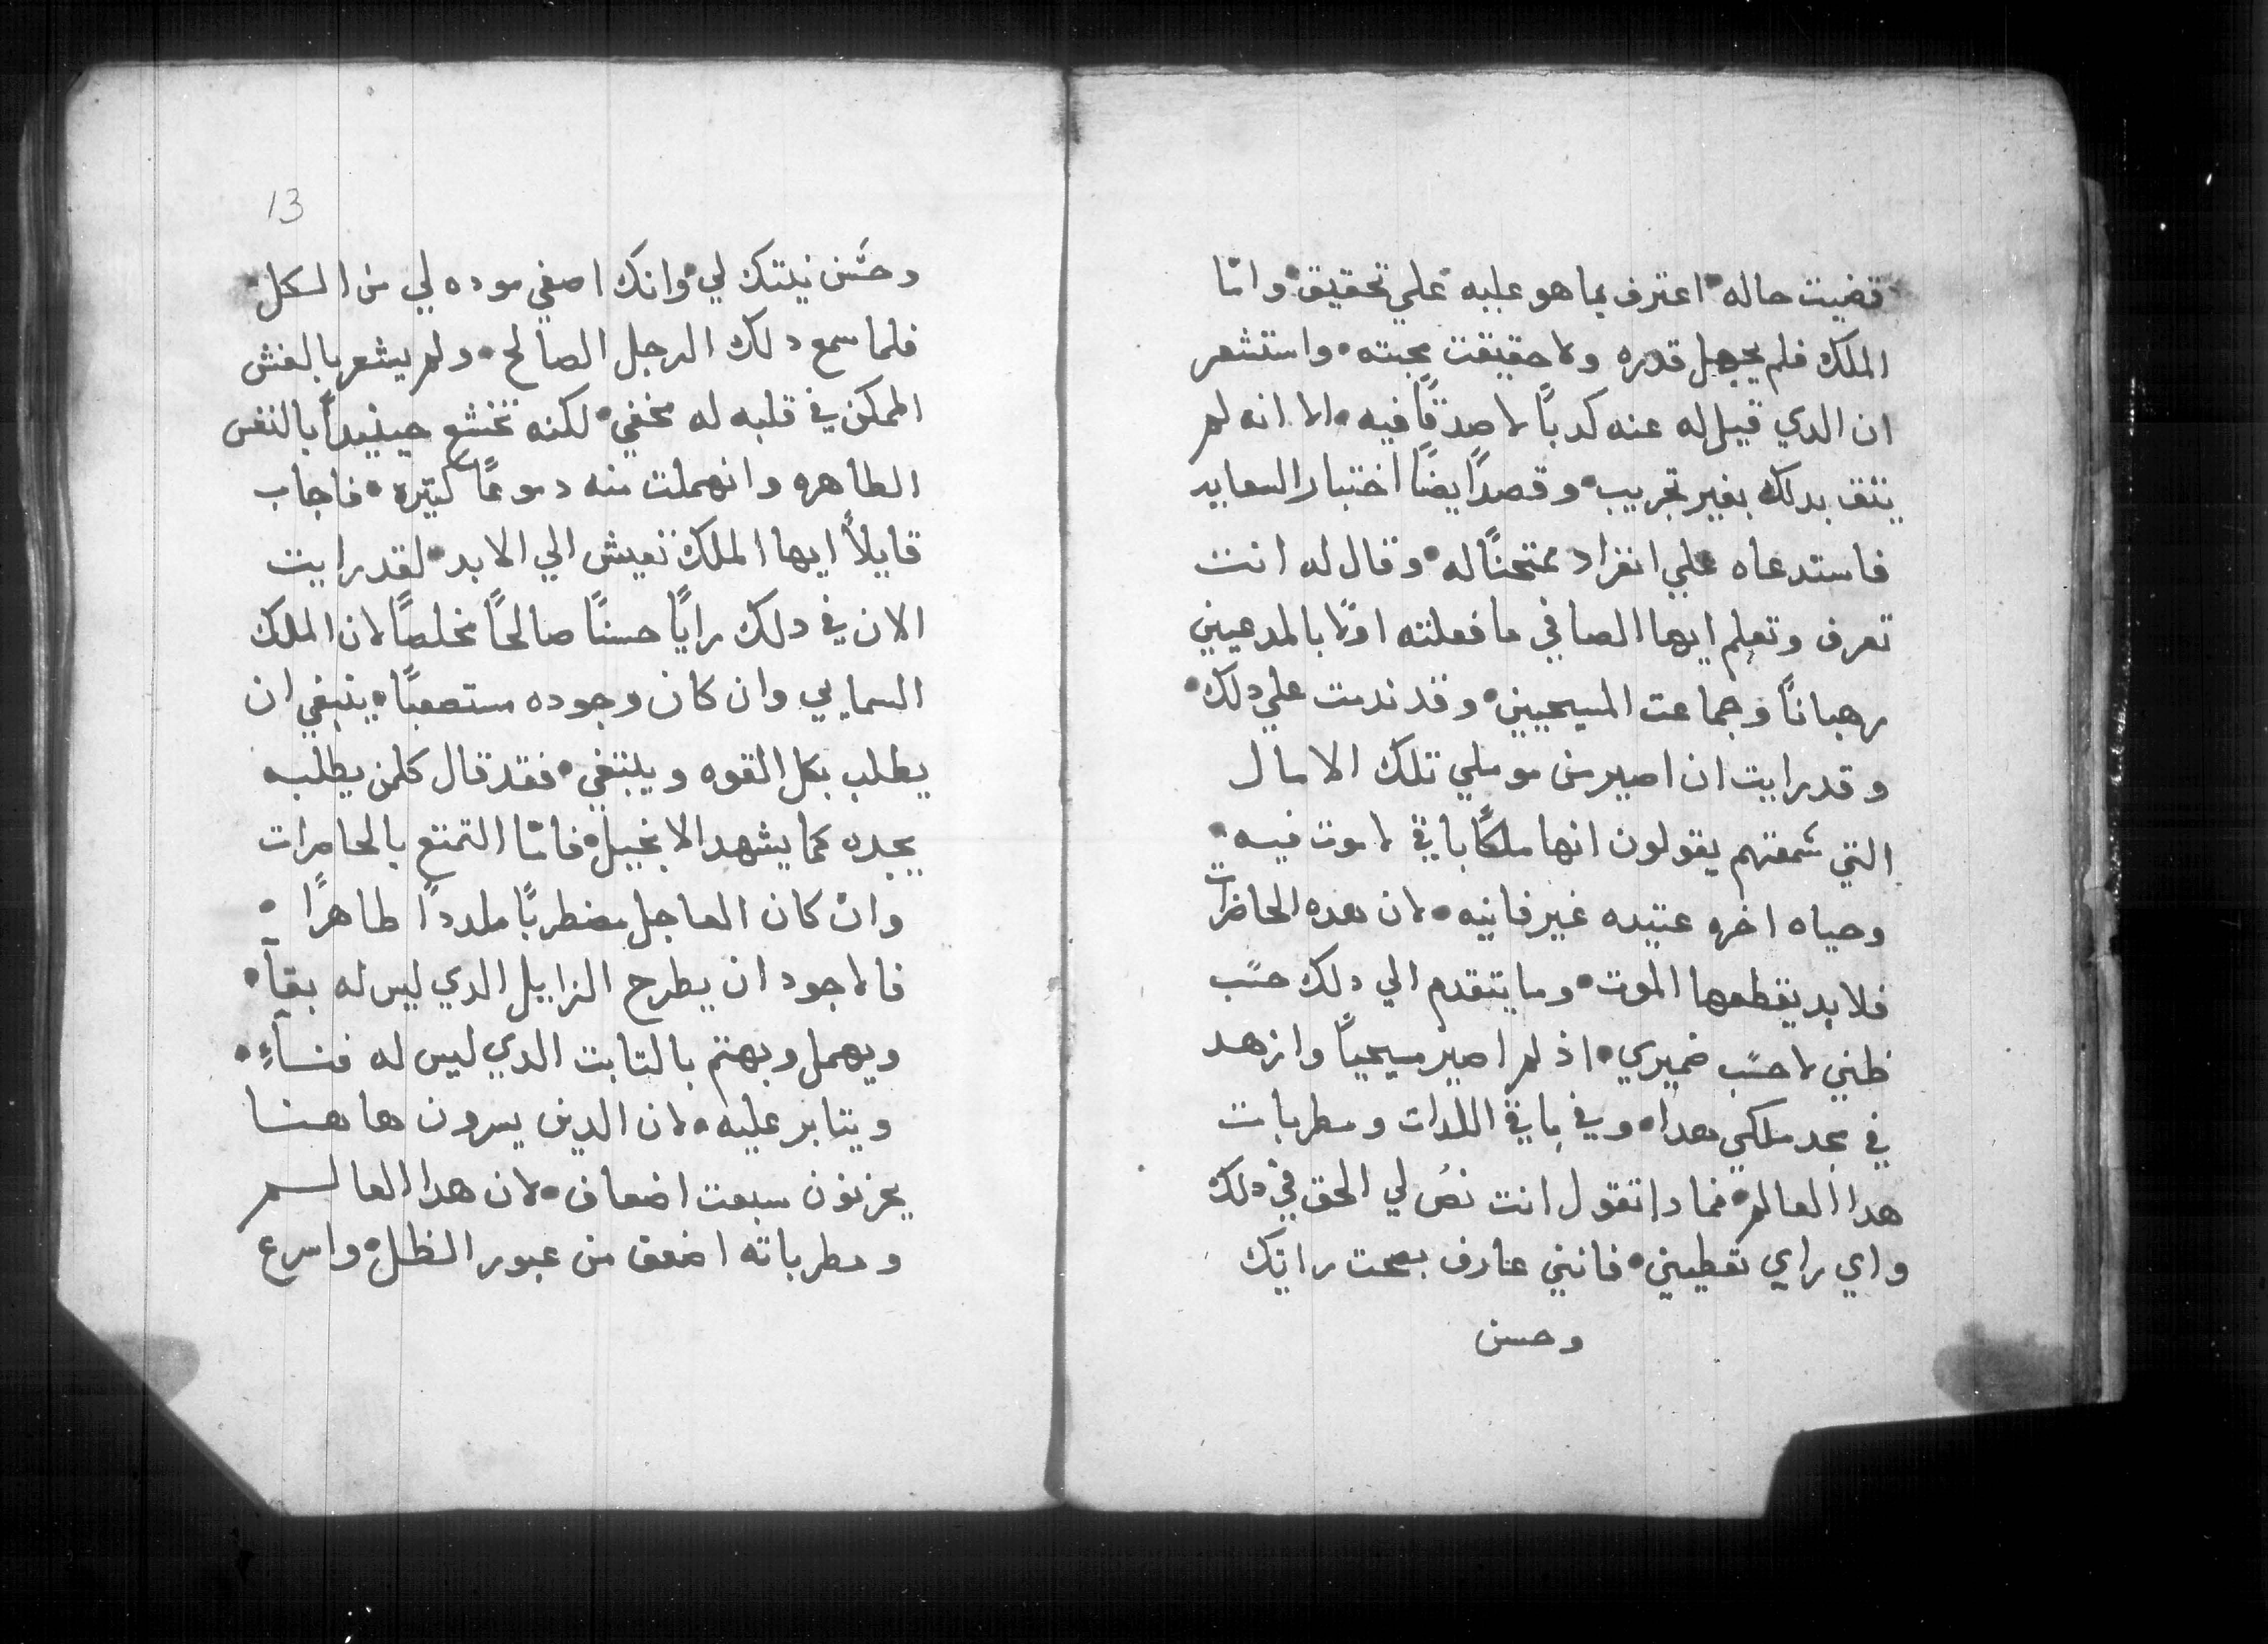 قضيت حاله• اعترف بما هو عليه علي تحقيق• وامّا
الملك فلم يجهل قدره ولا حقيقت محبته• واستشعر
ان الدي قيل له عنه كدبًا لا صدقًا فيه• الا انه لم
يثق بدلك بغير تجريب• وقصدًا يضًا اختبار السعايد
فاستدعاه علي انفراد ممتحنًا له• وقال له انت
تعرف وتعلم ايها الصافي ما فعلته اولًا بالمدعيين
رهبانًا وجماعت المسيحيين• وقد ندمت علي دلك•
وقد رايت ان اصير من مومِلي تلك الامال
التي سمعتهم يقولون انها ملكًا باقي لا موت فيه•
وحياه اخره عتيده غير فانيه• لان هده الحاضرات
فلا بد يقطعها الموت• وما يتقدم الي دلك حسَب
ظني لا حسَب ضميري• اذ لم اصير مسيحيًا وازهد
في مجد ملكي هدا• وفي باقي اللدات ومطربات
هدا العالم• فمادا تقول انت نصُ لي الحق في دلك
واي راي تعطيني• فانني عارف بصحت رايَك
وحسن
13
وحسَن نيلتك لي• وانك اصفي موده لي من الكل•
فلما سمع دلك الرجل الصالح• ولم يشعر بالغش
الممكن في قلبه له مخفي• لكنه تخشع حينيدًا بالنفس
الطاهره وانهملت منه دموعًا كتيره• فاجاب
قايلًا ايها الملك تعيش الي الابد• لقد رايت
الان في دلك رايًا حسنًا صالحًا مخلصًا لان الملك
السمايي وان كان وجوده مستصعبًا• ينبغي ان
يطلب بكل القوه ويبتغي• فقد قال كلمن يطلبه
يجده كما يشهد الانجيل• فامّا التمتع بالحاضرات
وان كان العاجل مضطربًا ملددًا طاهرًا•
فالاجود ان يطرح الزايل الدي ليس له بقآ•
ويهمل ويهتم بالتابت الدي ليس له فناءٍ•
ويتابر عليه• لان الدين يسرون هاهنا
يحزنون سبعت اضعاف• لان هدا العالم
ومطرباته اضعف من عبور الظل• واسرع